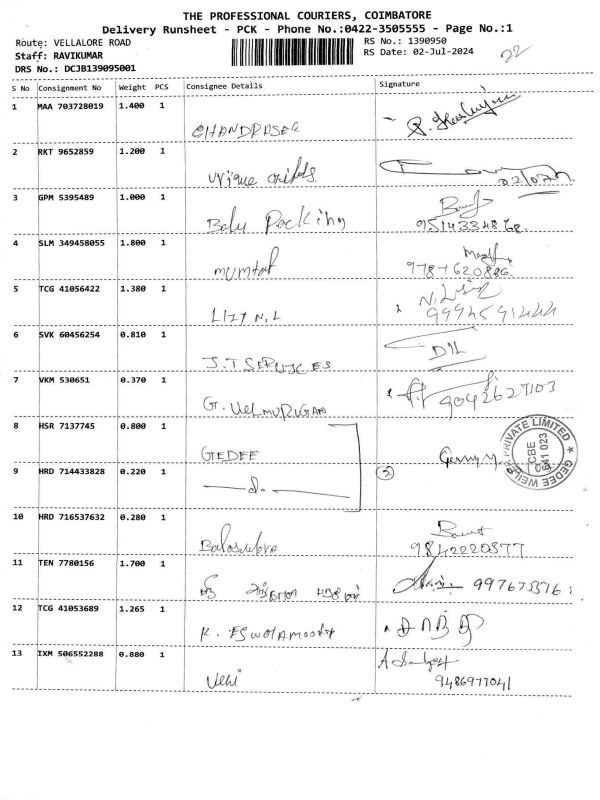 THE PROFESSIONAL COURIERS, COIMBATORE
Delivery Runsheet - PCK - Phone No.:0422-3505555 - Page No.:1
Route: VELLALORE ROAD RS No.: 1390950 22
Staff: RAVIKUMAR RS Date: 02-Jul-2024
DRS No.: DCJB139095001
S No Consignment No Weight PCS Consignee Details Signature
1 MAA 703728019 1.400 1
CHANDRASER
2 RKT 9652859 1.200 1
Unique
3 GPM 5395489 1.000 1
Balu Packing
4 SLM 349458055 1.800 1
mumtaj 9787620886
5 TCG 41056422 1.380 1
N.L 9994591444
6 SVK 60456254 0.810 1
J.T SERVICES
7 VKM 530651 0.370 1
G. VELMURUGAN 9042627103
8 HSR 7137745 0.800 1
GEDEE
GEDEE WEILER PRIVATE LIMITED
CBE
641 023
9 HRD 714433828 0.220 1 5
10 HRD 716537632 0.280 1
9842220577
11 TEN 7780156 1.700 1
12 TCG 41053689 1.265 1
K. ESWARAMOORTHY
13 IXM 506552288 0.880 1
9486977041